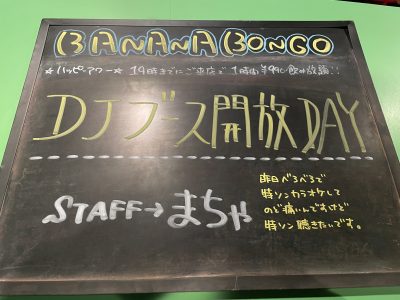 BANANA BONGO
☆ ハッピーアワー ☆ 19時までにご来店で 1時間 ¥990飲み放題!!
DJブース開放DAY
STAFF→まちゃ
昨日べろべろで
特ソンカラオケして
のど痛いんですけど
特ソン聴きたいです。